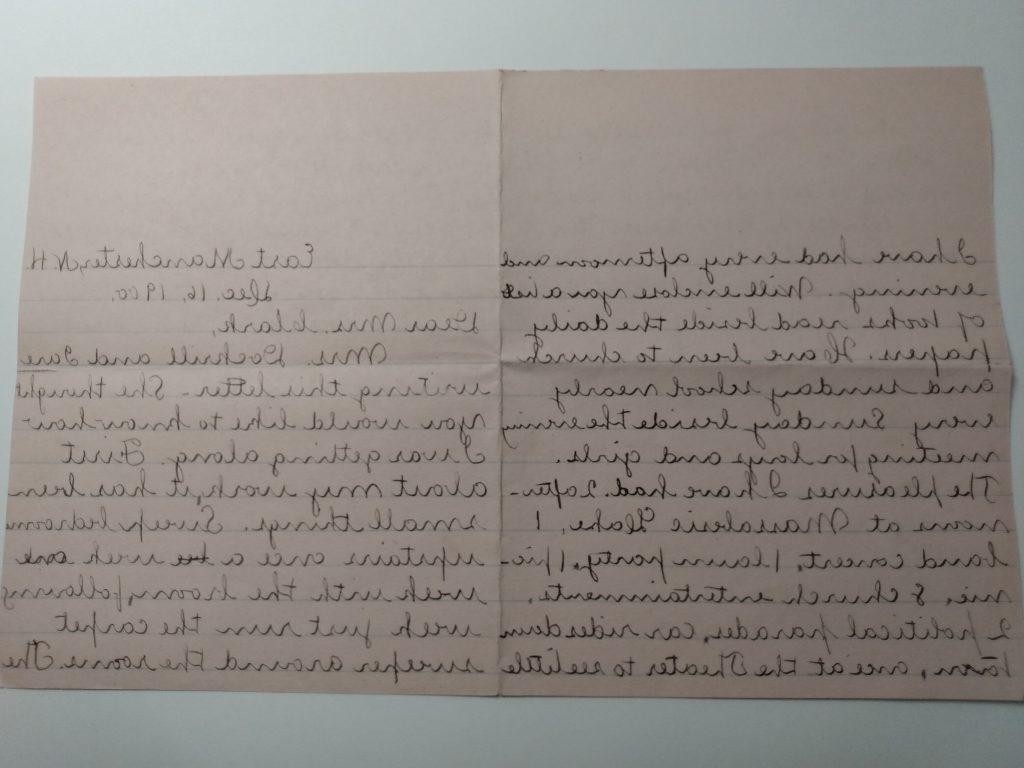 East Manchester, N.H.
Dec. 16, 1900.
Dear Mrs. Clark,
Mrs. and Jane
writing this letter. She thought
you would like to know how
I was getting along. First
about my work, it has been
small things. Sweep bedroom
upstairs once a week one
week with the broom, following
week just run the carpet
sweeper around the rooms. The
I have had every afternoon and
evening. Will enclose you a list
of books read beside the daily
papers. Have been to church
and sunday school nearly
every Sunday beside the evening
meeting for boys and girls.
The pleasures I have had. 2 after-
noons at Massabesic Lake, 1
band concert, 1 lawn party, 1 pic-
nic, 8 church entertainments,
2 political parades, car rides down
town, once at the Theater to see little